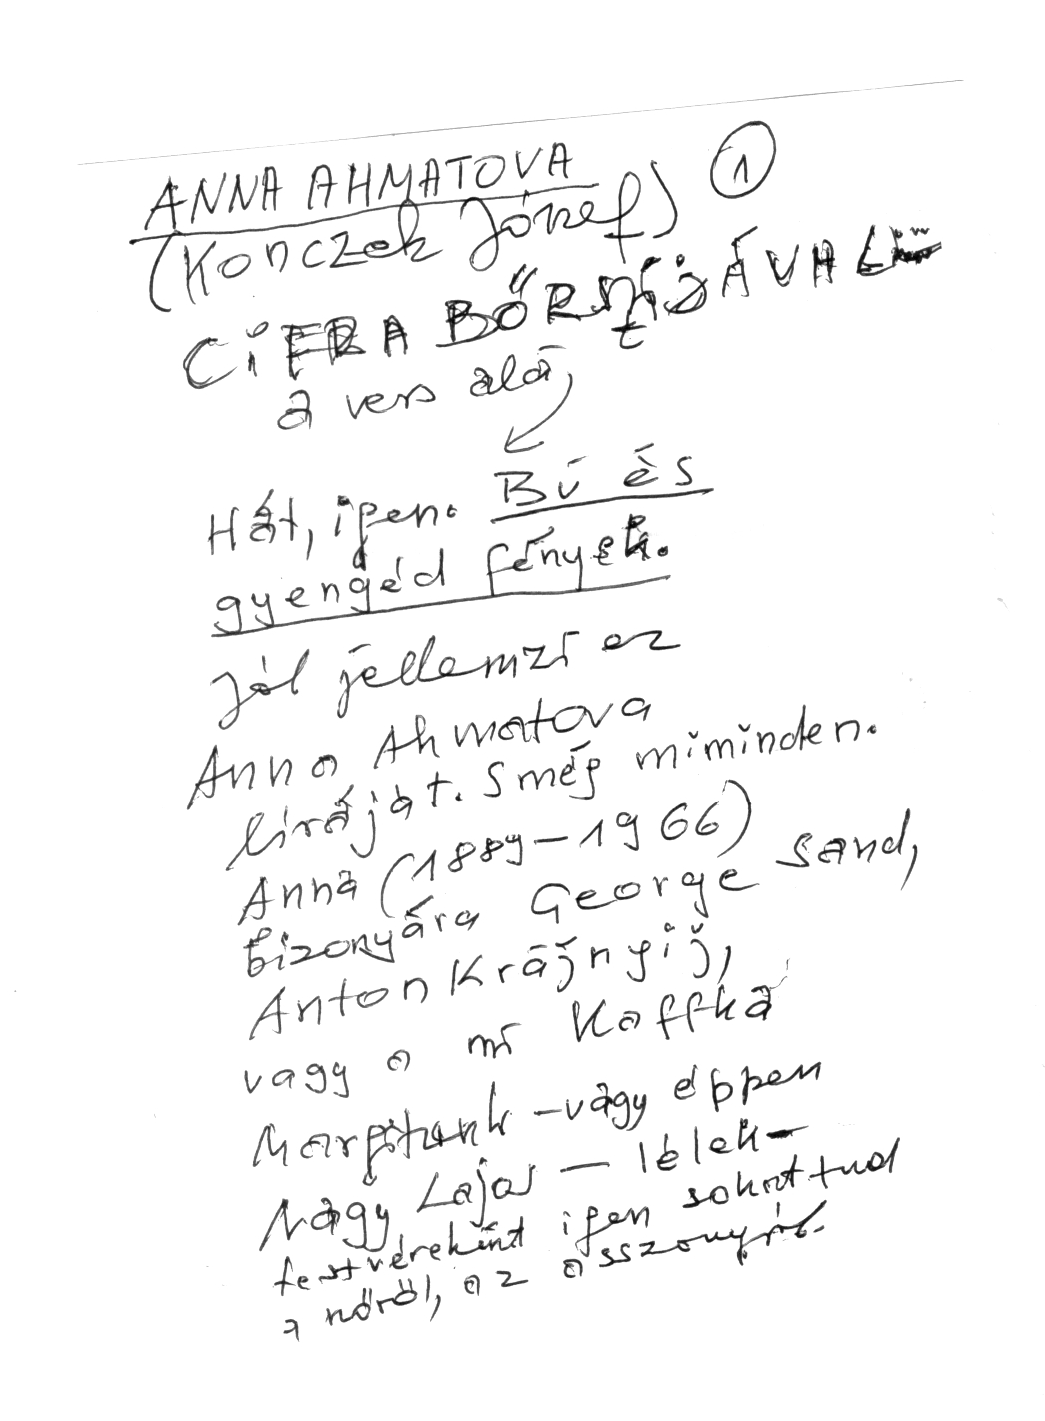 ANNA AHMATOVA ①
(Konczek József)
CIFRA BŐRSZÍJÁVAL
a vers alá,
Hát, igen. Bú és
gyengéd fények.
Jól jellemzi ez
Anna Ahmatova
líráját. S még miminden.
Anna (1889-1966)
bizonyára George Sand,
Anton Krájnyij,
vagy a mi Kaffka
Margitunk - vagy éppen
Nagy Lajos - lélek-
testvéreként igen sokat tud
a nőről, az asszonyról.